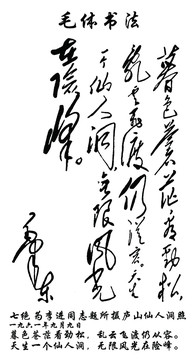 毛体书法
暮色蒼茫看劲松
乱云飞渡仍從容天生
一个仙人洞无限风光
在險峰。
毛泽东
七绝 为李进同志题所摄庐山仙人洞照
一九六一年九月九日
暮色苍茫看劲松， 乱云飞渡仍从容。
天生一个仙人洞， 无限风光在险峰。